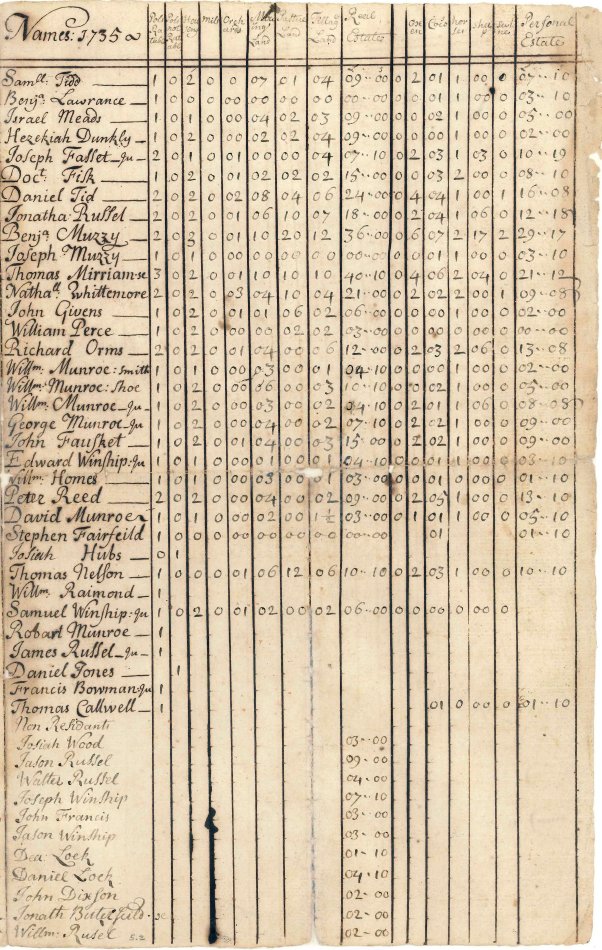 Names: 1735
Real Estates
Personal Estate
Samll: Tidd 1 0 2 0 0 07 01 04 09--00 0 2 01 1 00 0 07--10
Benja: Lawrance 1 0 0 0 00 00 00 00 00--00 0 0 01 1 0 03--10
Israel Meads 1 0 1 0 00 04 02 03 09--00 0 0 02 1 00 0 05--00
Hezekiah Dunkly 1 0 1 0 00 02 02 04 09--00 0 0 00 1 00 0 02--00
Joseph Fasset Ju 2 0 1 0 01 00 00 04 07--10 0 2 03 1 03 0 10--19
Doct: Fisk 1 0 1 0 01 02 02 02 15--00 0 0 03 2 00 0 08--10
Daniel Tid 2 0 2 0 02 08 04 06 24--00 0 4 04 1 00 1 16--08
Jonatha: Russel 2 0 2 0 01 06 10 07 18--00 0 2 04 1 06 0 12--18
Benja: Muzzy 2 0 3 0 01 10 20 12 36--00 0 6 07 2 17 2 29--17
Joseph Muzzy 1 0 1 0 01 00 00 00 00--00 0 0 01 1 00 0 03--10
Thomas Mirriam 3 0 2 0 01 10 10 10 40--10 0 4 06 2 04 0 21--12
Nathall Whittemore 2 0 2 0 03 04 10 04 21--00 0 2 02 2 00 1 09--08
John Givens 1 0 1 0 01 01 06 02 06--00 0 0 00 1 00 0 02--00
William Perce 1 0 1 0 00 00 02 02 03--00 0 0 00 0 00 0 00--00
Richard Orms 2 0 2 0 01 04 00 06 12--00 0 2 03 2 06 0 13--08
Willm: Munroe: Smith 1 0 1 0 00 03 00 01 04--10 0 0 01 1 00 0 02--00
Willm: Munroe: Shoe 1 0 2 0 00 06 00 03 10--10 0 0 02 1 00 0 05--00
Willm: Munroe Ju 1 0 2 0 00 03 00 02 04--10 0 2 01 1 06 0 08--08
George Munroe Ju 1 0 2 0 00 04 00 02 07--10 0 2 02 1 00 0 09--00
John Fausket 1 0 2 0 01 04 00 03 15--00 0 2 02 1 00 0 09--00
Edward Winship: Ju
Willm: Homes 1 0 1 0 00 03 00 01 03--00 0 0 01 0 00 0 01--10
Peter Reed 2 0 2 0 00 04 00 02 09--00 0 2 05 1 00 0 13--10
David Munroe 1 0 1 0 00 02 00 1½ 03--00 0 1 01 1 00 0 05--10
Stephen Fairfeild 1 0 0 0 00 00 00 00 00--00 01 01--10
Josiah Hubs 0 1
Thomas Nelson 1 0 0 0 01 06 12 06 10--10 0 2 03 1 00 0 10--10
Willm: Raimond 1
Samuel Winship: Ju 1 0 2 0 01 02 00 02 06--00 0 0 00 0 00 0
Robart Munroe 1
James Russel Ju 1
Daniel Jones 1
Francis Bowman Ju 1
Thomas Callwell 1 01 0 00 0 01--10
Non Residants
Josiah Wood 03--00
Jason Russel 09--00
Walter Russel 04--00
Joseph Winship 07--10
John Francis 03--00
Jason Winship 03--00
Dea: Lock 01--10
Daniel Lock 04--10
John Dixson 02--00
Jonath 02--00
Willm: Rusel 02--00